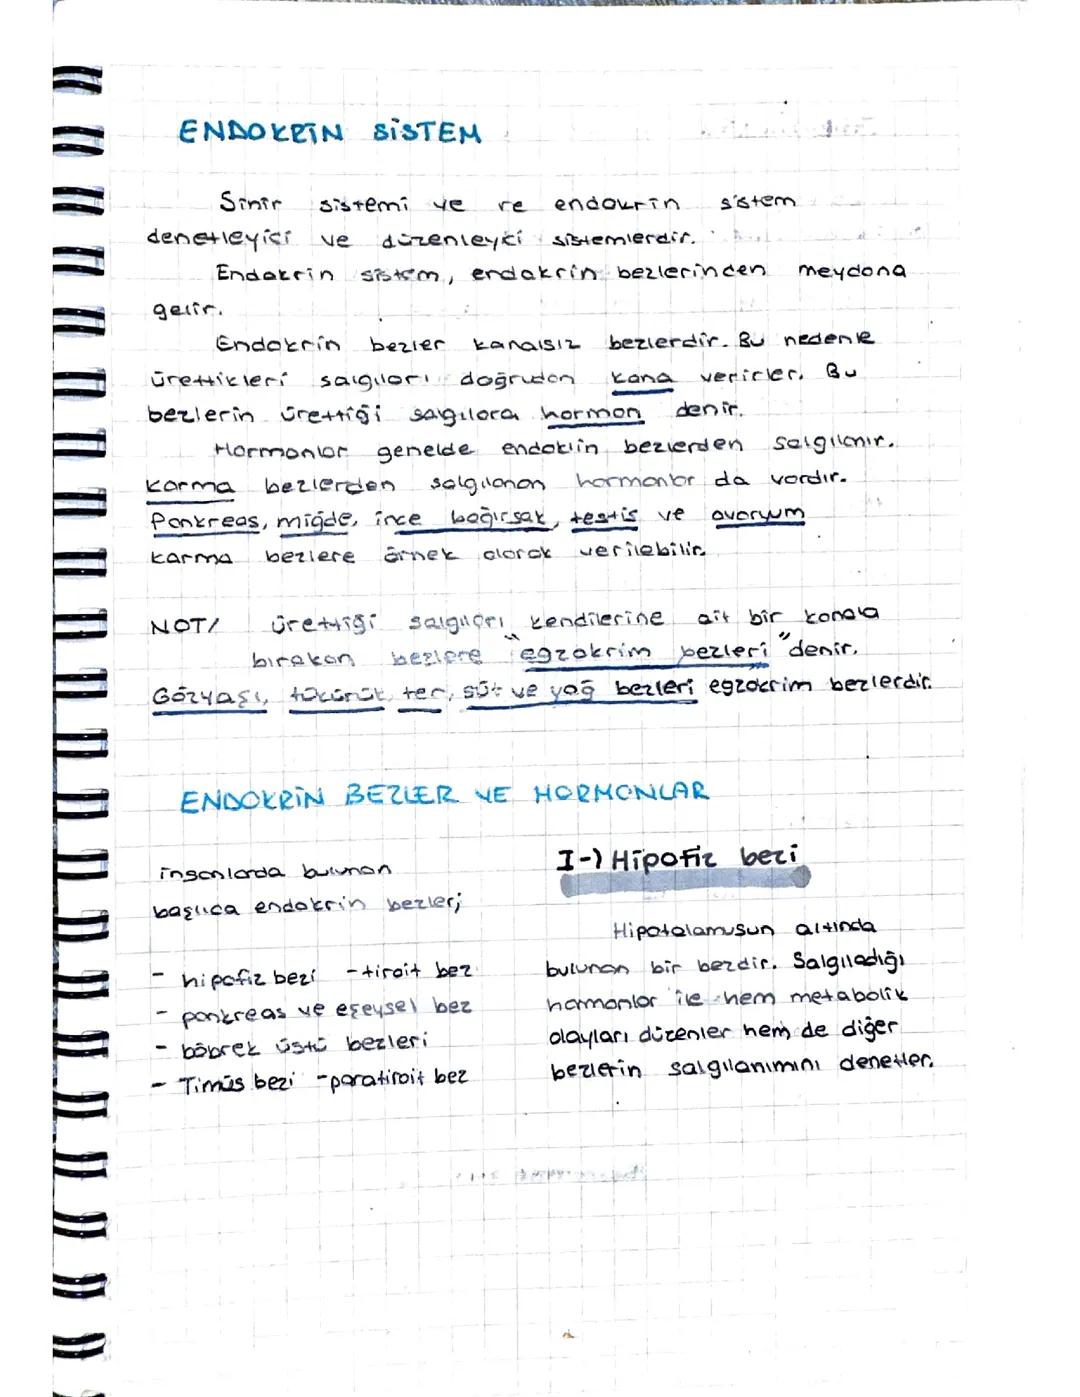 ENDOKRİN SİSTEM
Sinir sistemi ve re endokrin sistem
denetleyici ve düzenleyici sistemlerdir.
Endokrin sistem, endokrin bezlerinden meydana
gelir.
Endokrin bezler kanalsız bezlerdir. Bu nedenle
ürettikleri salgıları doğrudan kana verirler. Bu
bezlerin ürettiği salgılara hormon denir.
Hormonlar genelde endoklin bezlerden salgılanır.
Karma bezlerden salgılanan hormonlar da vardır.
Pankreas, miğde, ince bağırsak, testis ve ovaryum
karma bezlere örnek olarak verilebilir.
NOT/ ürettiği salgıları kendilerine ait bir kanala
bırakan bezlere "egzokrim bezleri" denir.
Gözyaşı, tükürük, ter, süt ve yağ bezleri egzokrim bezlerdir.
ENDOKRİN BEZLER VE HORMONLAR
insanlarda bulunan
başlıca endokrin bezler;
- hipofiz bezi - tiroit bez
- pankreas ve eşeysel bez
- böbrek üstü bezleri
- Timüs bezi - paratiroit bez
I-) Hipofiz bezi
Hipotalamusun altında
bulunan bir bezdir. Salgıladığı
hormonlar ile hem metabolik
olayları düzenler hem de diğer
bezlerin salgılanımını denetler.